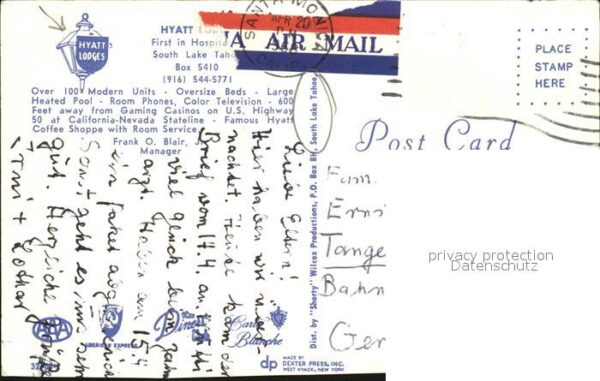 HYATT LODGES
HYATT LODG
First in Hospita
South Lake Taho
Box 5410
(916) 544-5771
Over 100 Modern Units - Oversize Beds - Large
Heated Pool - Room Phones, Color Television - 600
Feet away from Gaming Casinos on U.S. Highway
50 at California-Nevada Stateline - Famous Hyatt
Coffee Shoppe with Room Service
Frank O. Blair, J
Manager
SANTA MONICA
APR 20
CALIF
A AIR MAIL
PLACE
STAMP
HERE
Post Card
Liebe Eltern!
Hier haben wir über-
nachtet. Heute kam der
Brief vom 11.4. an.
viel Glück beim Zahn
arzt. Haben am 15.4
Sonst geht es uns sehr
gut. Herzliche Grüße
+ Lothar
Fam.
Erns
Tange
Bahn
Ger
Dist. by "Shorty" Wilcox Productions, P.O. Box Bb, South Lake Tahoe,
AMERICAN EXPRESS
Diners
Carte
Blanche
dp
MADE BY
DEXTER PRESS, INC.
WEST NYACK, NEW YORK
privacy protection
Datenschutz